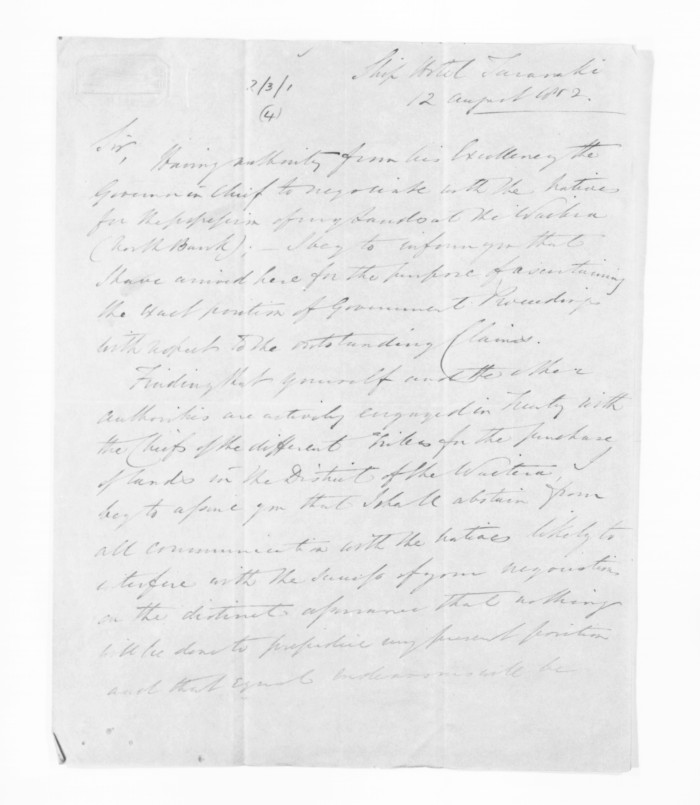 Ship Hotel Taranaki
2/3/1
12 August 1852.
(4)
Sir,
Having authority from his Excellency the
Governor in Chief to negotiate with the Natives
for the possession of my Lands at the Waitera
(North Bank); – I beg to inform you that
I have arrived here for the purpose of ascertaining
the exact position of Government Proceedings
with respect to the outstanding Claims.
Finding that yourself and the other
authorities are actively engaged in Treaty with
the Chiefs of the different Tribes for the purchase
of Lands in the District of the Waitera, I
beg to assure you that I shall abstain from
all communication with the Natives likely to
interfere with the success of your negociations
on the distinct assurance that nothing
will be done to prejudice my present position
and that equal endeavours will be